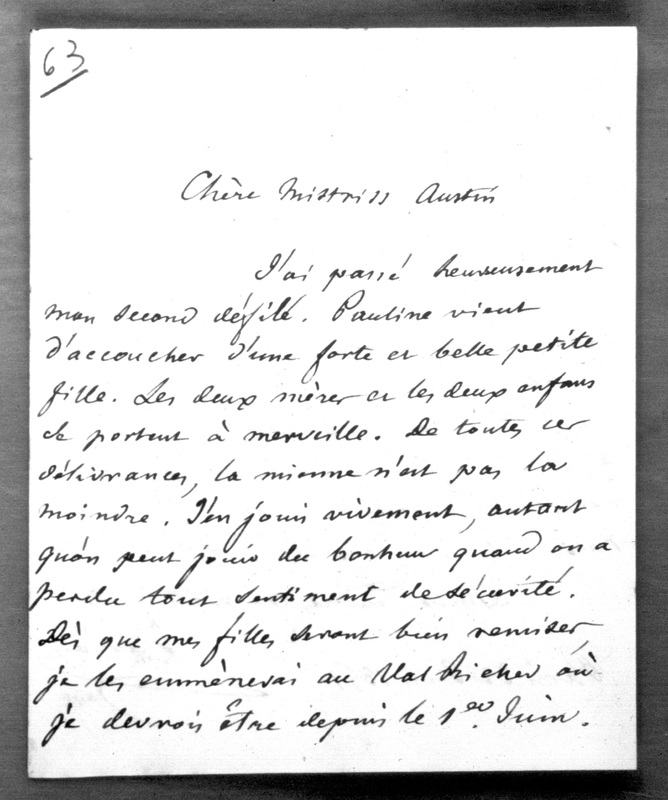 63
Chère Mistriss Austin
J'ai passé heureusement
mon second défilé. Pauline vient
d'accoucher d'une forte et belle petite
fille. Les deux mères et les deux enfans
se portent à merveille. De toutes ces
délivrances, la mienne n'est pas la
moindre. J'en jouis vivement, autant
qu'on peut jouir du bonheur quand on a
perdu tout sentiment de sécurité.
Dès que mes filles seront bien remises,
je les emmènerai au Val Richer où
je devrois être depuis le 1er. Juin.